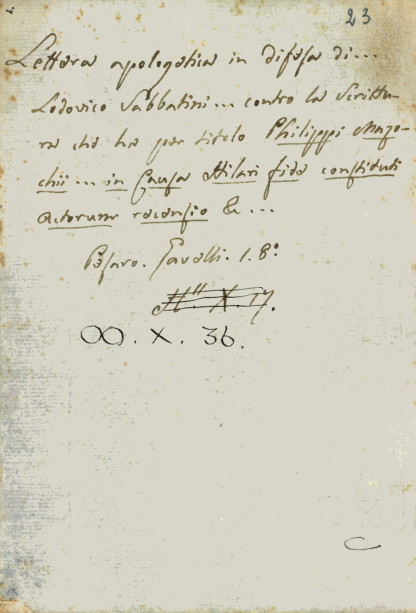 23
Lettera apologetica in difesa di...
Lodovico Sabbatini... contro la Scrittu-
ra che ha per titolo Philippi Mazo-
chii... in Causa Hilari fide constituti
actorum recensio &...
Pesaro. Gavelli. 1. 8°
H". X. 17.
OO. X. 36.
C